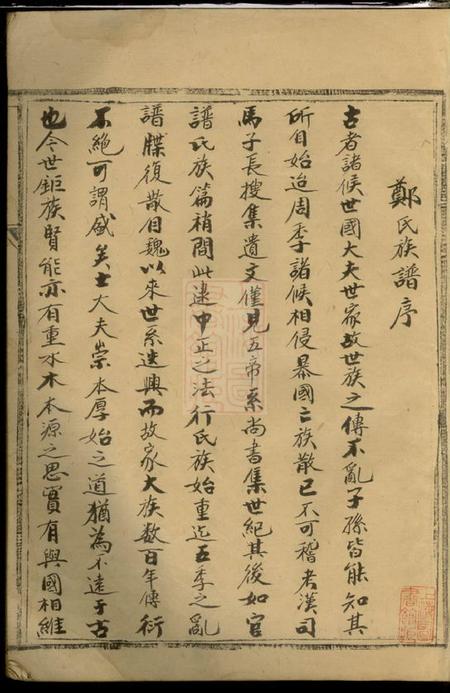 鄭氏族譜序
古者諸侯世國大夫世家故世族之傳不亂子孫皆能知其
所自始迨周季諸侯相侵暴國亡族散已不可稽考漢司
馬子長搜集遺文僅見五帝系尚書集世紀其後如官
譜氏族篇稍間此逮中正之法行氏族始重迄五季之亂
譜牒復散自魏以來世系迭興而故家大族數百年傳衍
不絕可謂盛矣士大夫崇本厚始之道猶為不遠于古
也今世鉅族賢能亦有重水木本源之思實有與國相維